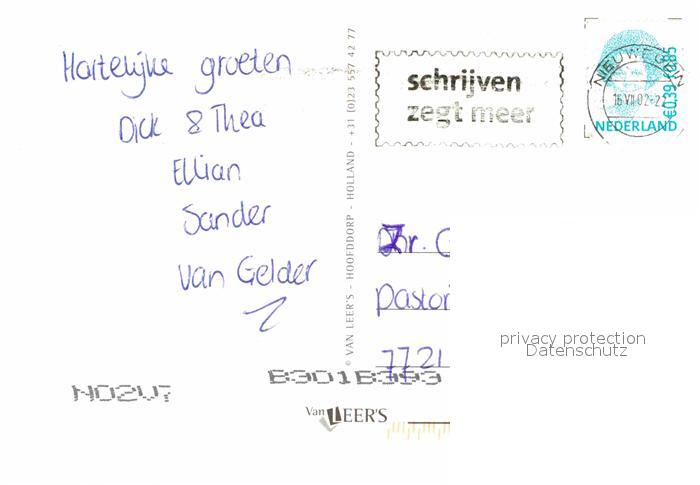 Hartelijke groeten
Dick & Thea
Ellian
Sander
van Gelder
© VAN LEER'S - HOOFDDORP - HOLLAND - +31 (0)23 557 42 77
schrijven
zegt meer
NIEUWEGEIN
16 VII 02
NEDERLAND
€0,39
Dhr. G
Pastor
7721
privacy protection
Datenschutz
B301B393
Van LEER'S